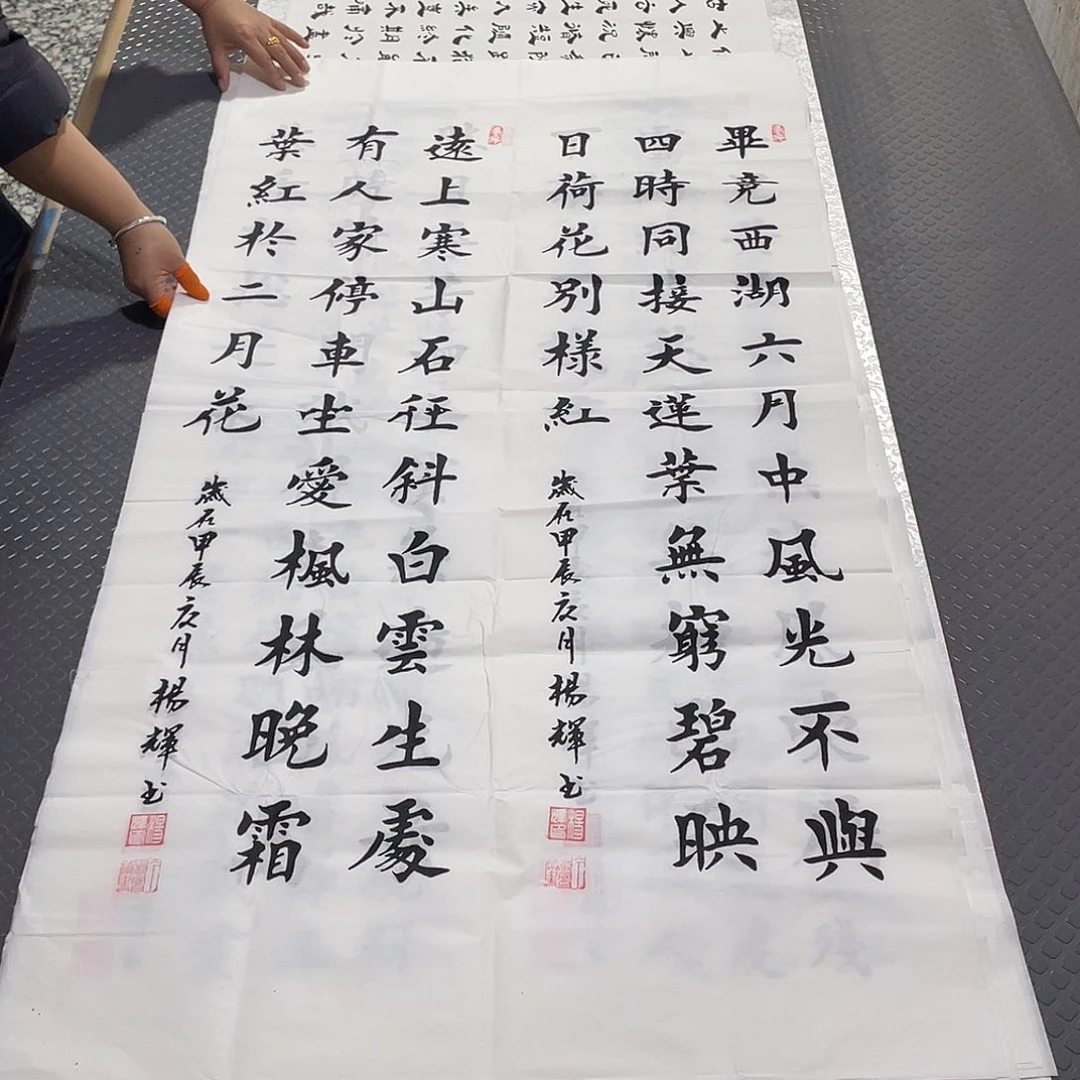 畢竟西湖六月中風光不與
四時同接天蓮葉無窮碧映
日荷花別樣紅
歲在甲辰夏月楊輝书
遠上寒山石徑斜白雲生處
有人家停車坐愛楓林晚霜
葉紅於二月花
歲在甲辰夏月楊輝书